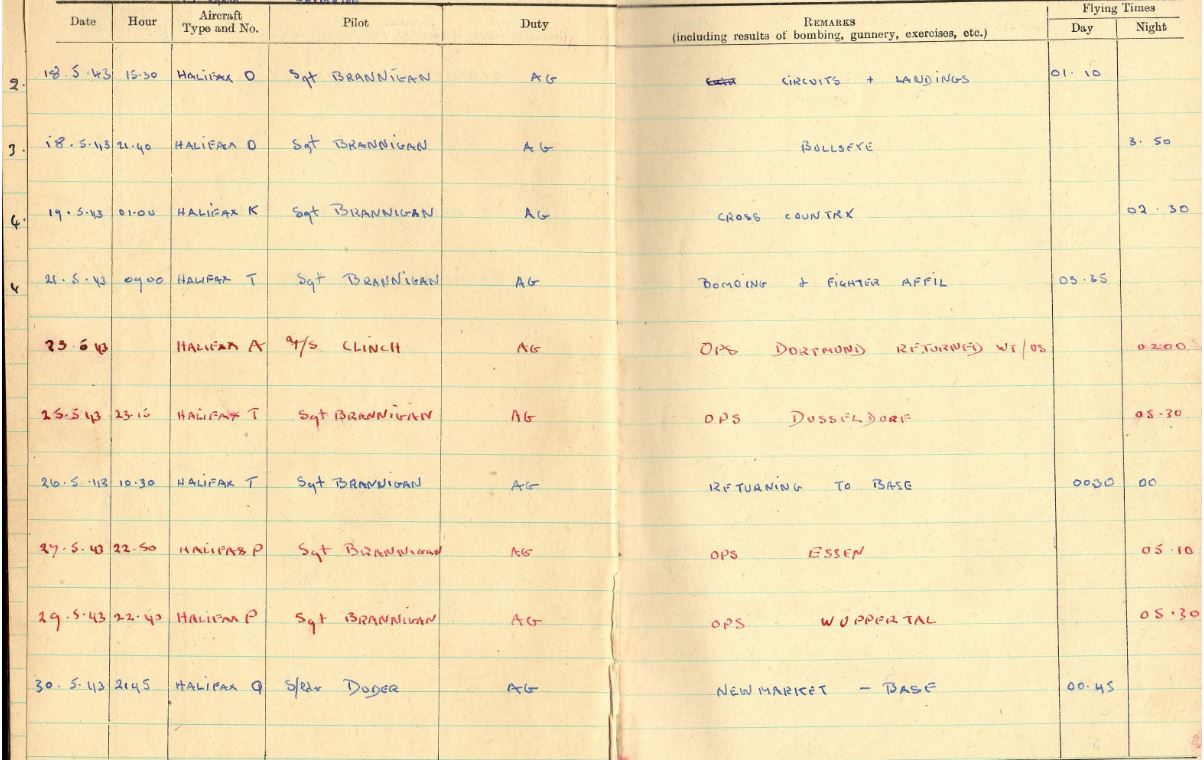 Date Hour Aircraft Type and No. Pilot Duty REMARKS (including results of bombing, gunnery, exercises, etc.) Flying Times Day Night
2. 18.5.43 15.30 HALIFAX O Sgt BRANNIGAN AG CIRCUITS + LANDINGS 01.10
3. 18.5.43 21.40 HALIFAX O Sgt BRANNIGAN AG BULLSEYE 3.50
4. 19.5.43 01.00 HALIFAX K Sgt BRANNIGAN AG CROSS COUNTRY 02.30
4 21.5.43 0900 HALIFAX T Sgt BRANNIGAN AG BOMBING & FIGHTER AFFIL
23.5.43 HALIFAX A CLINCH AG OPS DORTMUND RETURNED 0200
25.5.43 23.15 HALIFAX T Sgt BRANNIGAN AG OPS DUSSELDORF 05.30
26.5.43 10.30 HALIFAX T Sgt BRANNIGAN AG RETURNING TO BASE 0030 00
27.5.43 22.50 HALIFAX P Sgt BRANNIGAN AG OPS ESSEN 05.10
29.5.43 22.40 HALIFAX P Sgt BRANNIGAN AG OPS WUPPERTAL 05.30
30.5.43 2145 HALIFAX Q S/Ldr DODER AG NEWMARKET - BASE 00.45